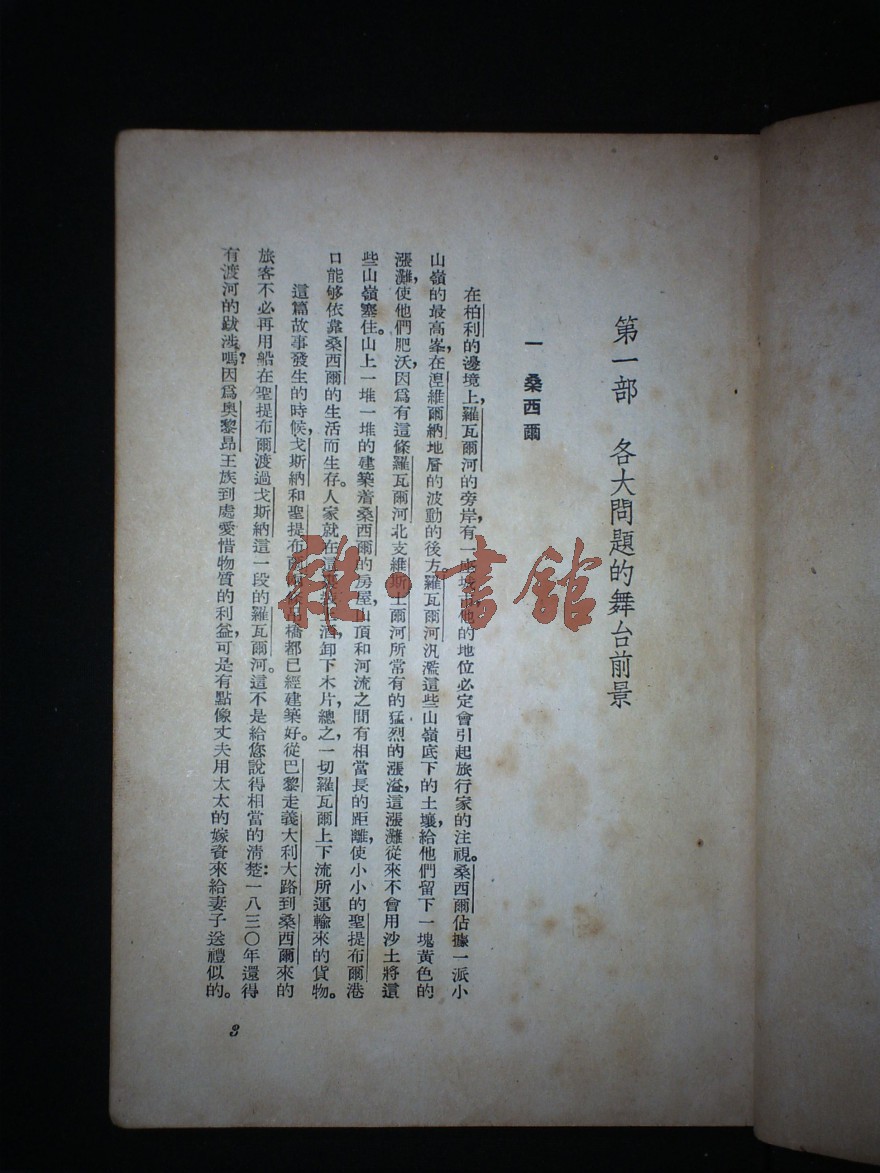 第一部　各大問題的舞台前景
一　桑西爾
在柏利的邊境上,羅瓦爾河的旁岸,有一座城市,他的地位必定會引起旅行家的注視。桑西爾佔據一派小
山嶺的最高峯,在湼維爾納地層的波動的後方。羅瓦爾河汎濫這些山嶺底下的土壤,給他們留下一塊黃色的
漲灘,使他們肥沃,因爲有這條羅瓦爾河北支維斯土爾河所常有的猛烈的漲溢,這漲灘從來不會用沙土將這
些山嶺塞住。山上一堆一堆的建築着桑西爾的房屋,山頂和河流之間有相當長的距離,使小小的聖提布爾港
口能够依靠桑西爾的生活而生存。人家就在這裏酒,卸下木片,總之,一切羅瓦爾上下流所運輸來的貨物。
這篇故事發生的時候,戈斯納和聖提布爾吊橋都已經建築好。從巴黎走義大利大路到桑西爾來的
旅客不必再用船在聖提布爾渡過戈斯納這一段的羅瓦爾河。這不是給您說得相當的清楚:一八三〇年還得
有渡河的跋涉嗎?因爲奧黎昂王族到處愛惜物質的利益,可是有點像丈夫用太太的嫁資來給妻子送禮似的。
3
雜·書舘